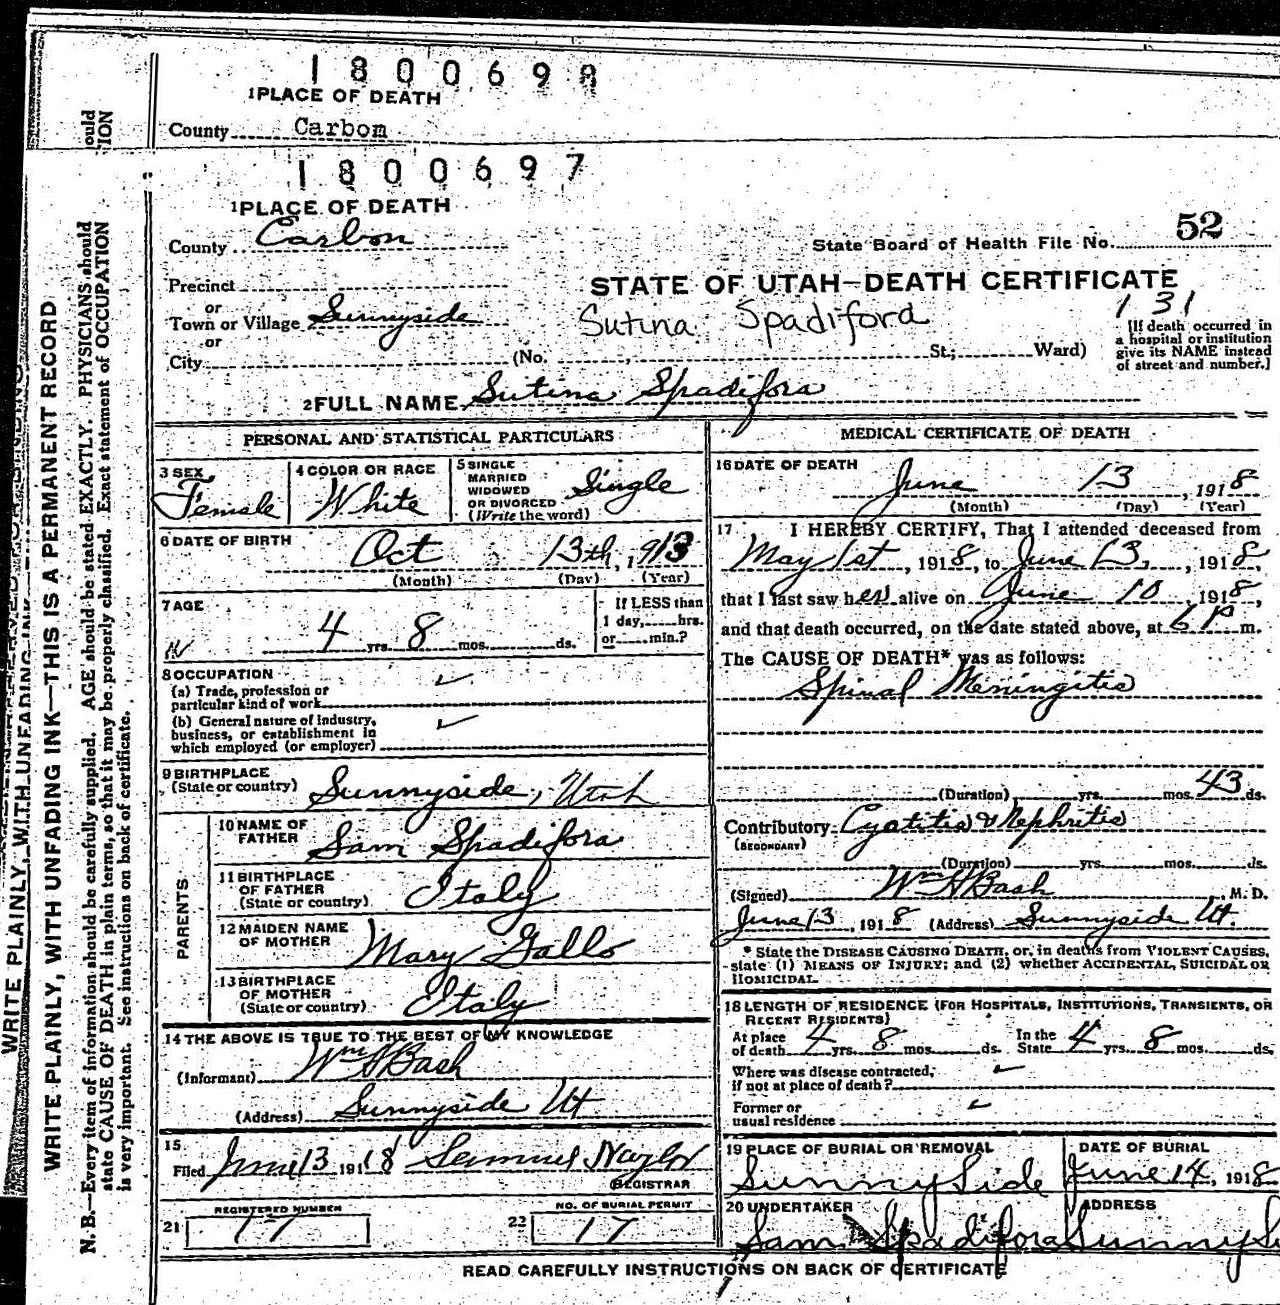 1800698
1 PLACE OF DEATH
County Carbom
1800697
1 PLACE OF DEATH
County Carbon
State Board of Health File No. 52
Precinct
STATE OF UTAH—DEATH CERTIFICATE
or
Town or Village Sunnyside
Sutina Spadiford
131
or
City (No. St.; Ward)
[If death occurred in
a hospital or institution
give its NAME instead
of street and number.]
2 FULL NAME Sutina Spadifora
PERSONAL AND STATISTICAL PARTICULARS
3 SEX Female
4 COLOR OR RACE White
5 SINGLE
MARRIED
WIDOWED
OR DIVORCED
(Write the word) Single
6 DATE OF BIRTH
Oct 13th, 1913
(Month) (Day) (Year)
7 AGE
4 yrs. 8 mos. ds.
If LESS than
1 day, hrs.
or min.?
8 OCCUPATION
(a) Trade, profession or
particular kind of work
(b) General nature of industry,
business, or establishment in
which employed (or employer)
9 BIRTHPLACE
(State or country) Sunnyside, Utah
PARENTS
10 NAME OF
FATHER Sam Spadifora
11 BIRTHPLACE
OF FATHER
(State or country) Italy
12 MAIDEN NAME
OF MOTHER Mary Gallo
13 BIRTHPLACE
OF MOTHER
(State or country) Italy
14 THE ABOVE IS TRUE TO THE BEST OF MY KNOWLEDGE
(Informant) Wm H Bash
(Address) Sunnyside Ut
15
Filed June 13 1918 Samuel Naylor
REGISTRAR
REGISTERED NUMBER
21 17
NO. OF BURIAL PERMIT
22 17
MEDICAL CERTIFICATE OF DEATH
16 DATE OF DEATH
June 13, 1918
(Month) (Day) (Year)
17 I HEREBY CERTIFY, That I attended deceased from
May 1st, 1918, to June 13, 1918,
that I last saw her alive on June 10, 1918,
and that death occurred, on the date stated above, at 6 P m.
The CAUSE OF DEATH* was as follows:
Spinal Meningitis
(Duration) yrs. mos. 43 ds.
Contributory Cystitis & Nephritis
(SECONDARY)
(Duration) yrs. mos. ds.
(Signed) Wm H Bash M. D.
June 13, 1918 (Address) Sunnyside Ut.
* State the DISEASE CAUSING DEATH, or, in deaths from VIOLENT CAUSES,
state (1) MEANS OF INJURY; and (2) whether ACCIDENTAL, SUICIDAL OR
HOMICIDAL.
18 LENGTH OF RESIDENCE (FOR HOSPITALS, INSTITUTIONS, TRANSIENTS, OR
RECENT RESIDENTS)
At place
of death 4 yrs. 8 mos. ds. In the
State 4 yrs. 8 mos. ds.
Where was disease contracted,
if not at place of death?
Former or
usual residence
19 PLACE OF BURIAL OR REMOVAL
SunnySide
DATE OF BURIAL
June 14, 1918
20 UNDERTAKER
Sam Spadifora
ADDRESS
READ CAREFULLY INSTRUCTIONS ON BACK OF CERTIFICATE
ould
TION
WRITE PLAINLY, WITH UNFADING IN
WRITE PLAINLY, WITH UNFADING INK—THIS IS A PERMANENT RECORD
N. B.—Every item of information should be carefully supplied. AGE should be stated EXACTLY. PHYSICIANS should
state CAUSE OF DEATH in plain terms, so that it may be properly classified. Exact statement of OCCUPATION
is very important. See instructions on back of certificate.